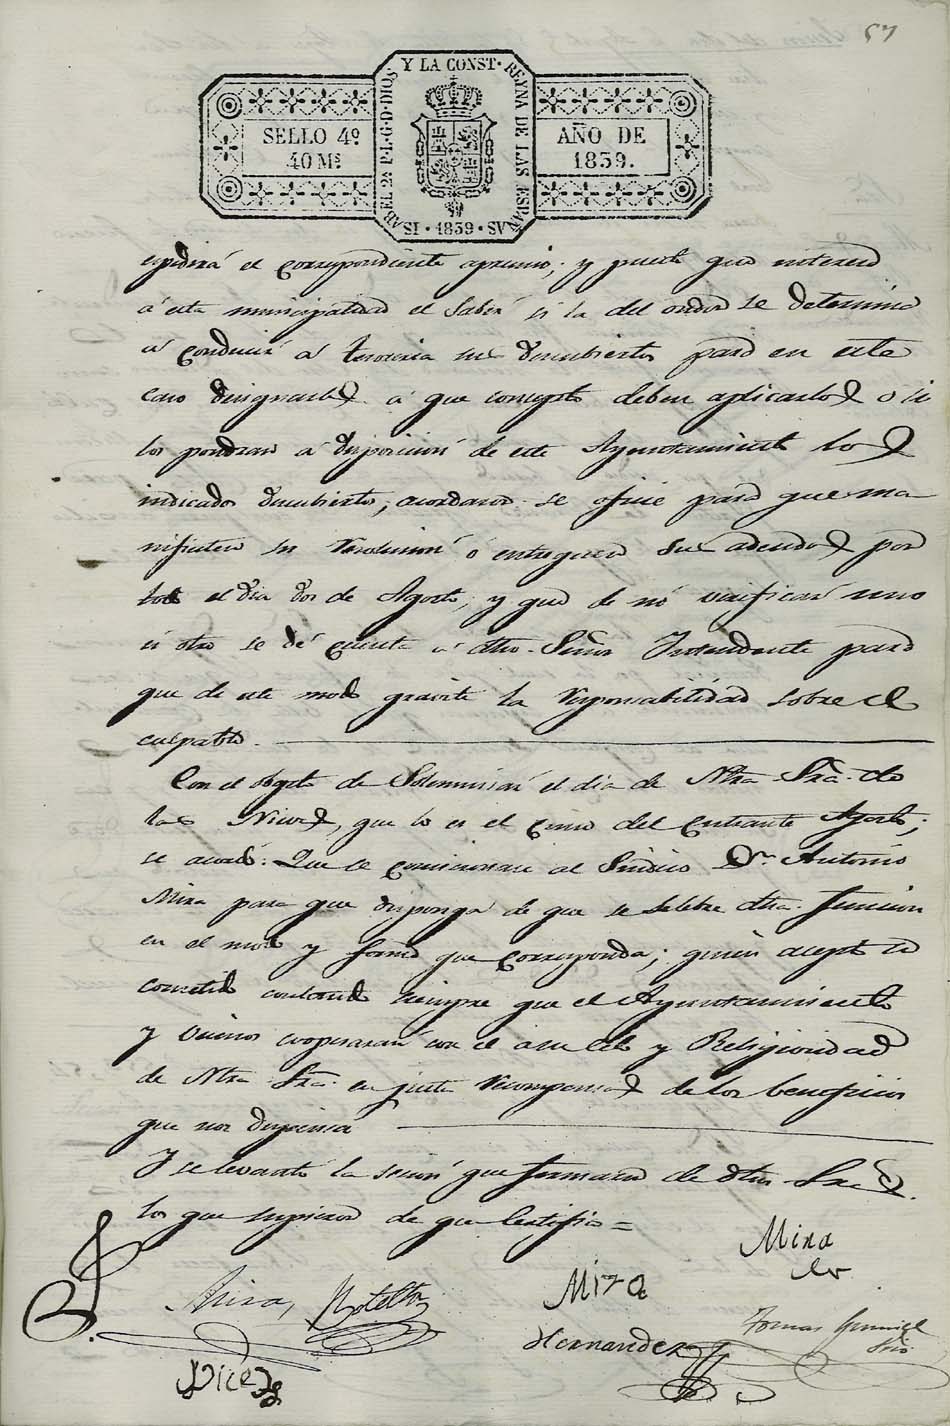 57
Y LA CONST· REYNA DE LAS ESPAÑ
ISABEL 2ª P·L·G·D·DIOS
SELLO 4º
40 Ms
AÑO DE
1839.
SI · 1839 · SV
espedirá el correspondiente apremio; y puesto que interesa
á esta municipalidad el saber si la del ondon se determina
á conducir á tesoreria sus descubiertos para en este
caso designarles á que concepto deben aplicarlos ó si
los pondran á disposicion de este Ayuntamiento los
indicados descubiertos; acordaron se oficie para que ma-
nifiesten su resolucion ó entreguen sus adeudos por
todo el dia dos de Agosto; y que de no verificar uno
ú otro se dé cuenta á dho. Señor Intendente para
que de este modo gravite la responsabilidad sobre el
culpable.
Con el objeto de Solemnisar el dia de Ntra Sra. de
las Nieves, que lo es el cinco del entrante Agosto;
se acordó: Que se comisionase al Sindico Dn. Antonio
Mira para que disponga de que se selebre dha. funcion
en el modo y forma que corresponda; quien acepto el
cometido contando siempre que el Ayuntamiento
y vecinos cooperaran con él á su celo y Religiosidad
de Ntra Sra. en justa recompensa de los beneficios
que nos dispensa
Y se levantó la sesion que firmaron de dhos Sres.
los que supieron de que Certifico =
Mira
Mira, Botella
Mira
Hernandez
Tomas
Srio